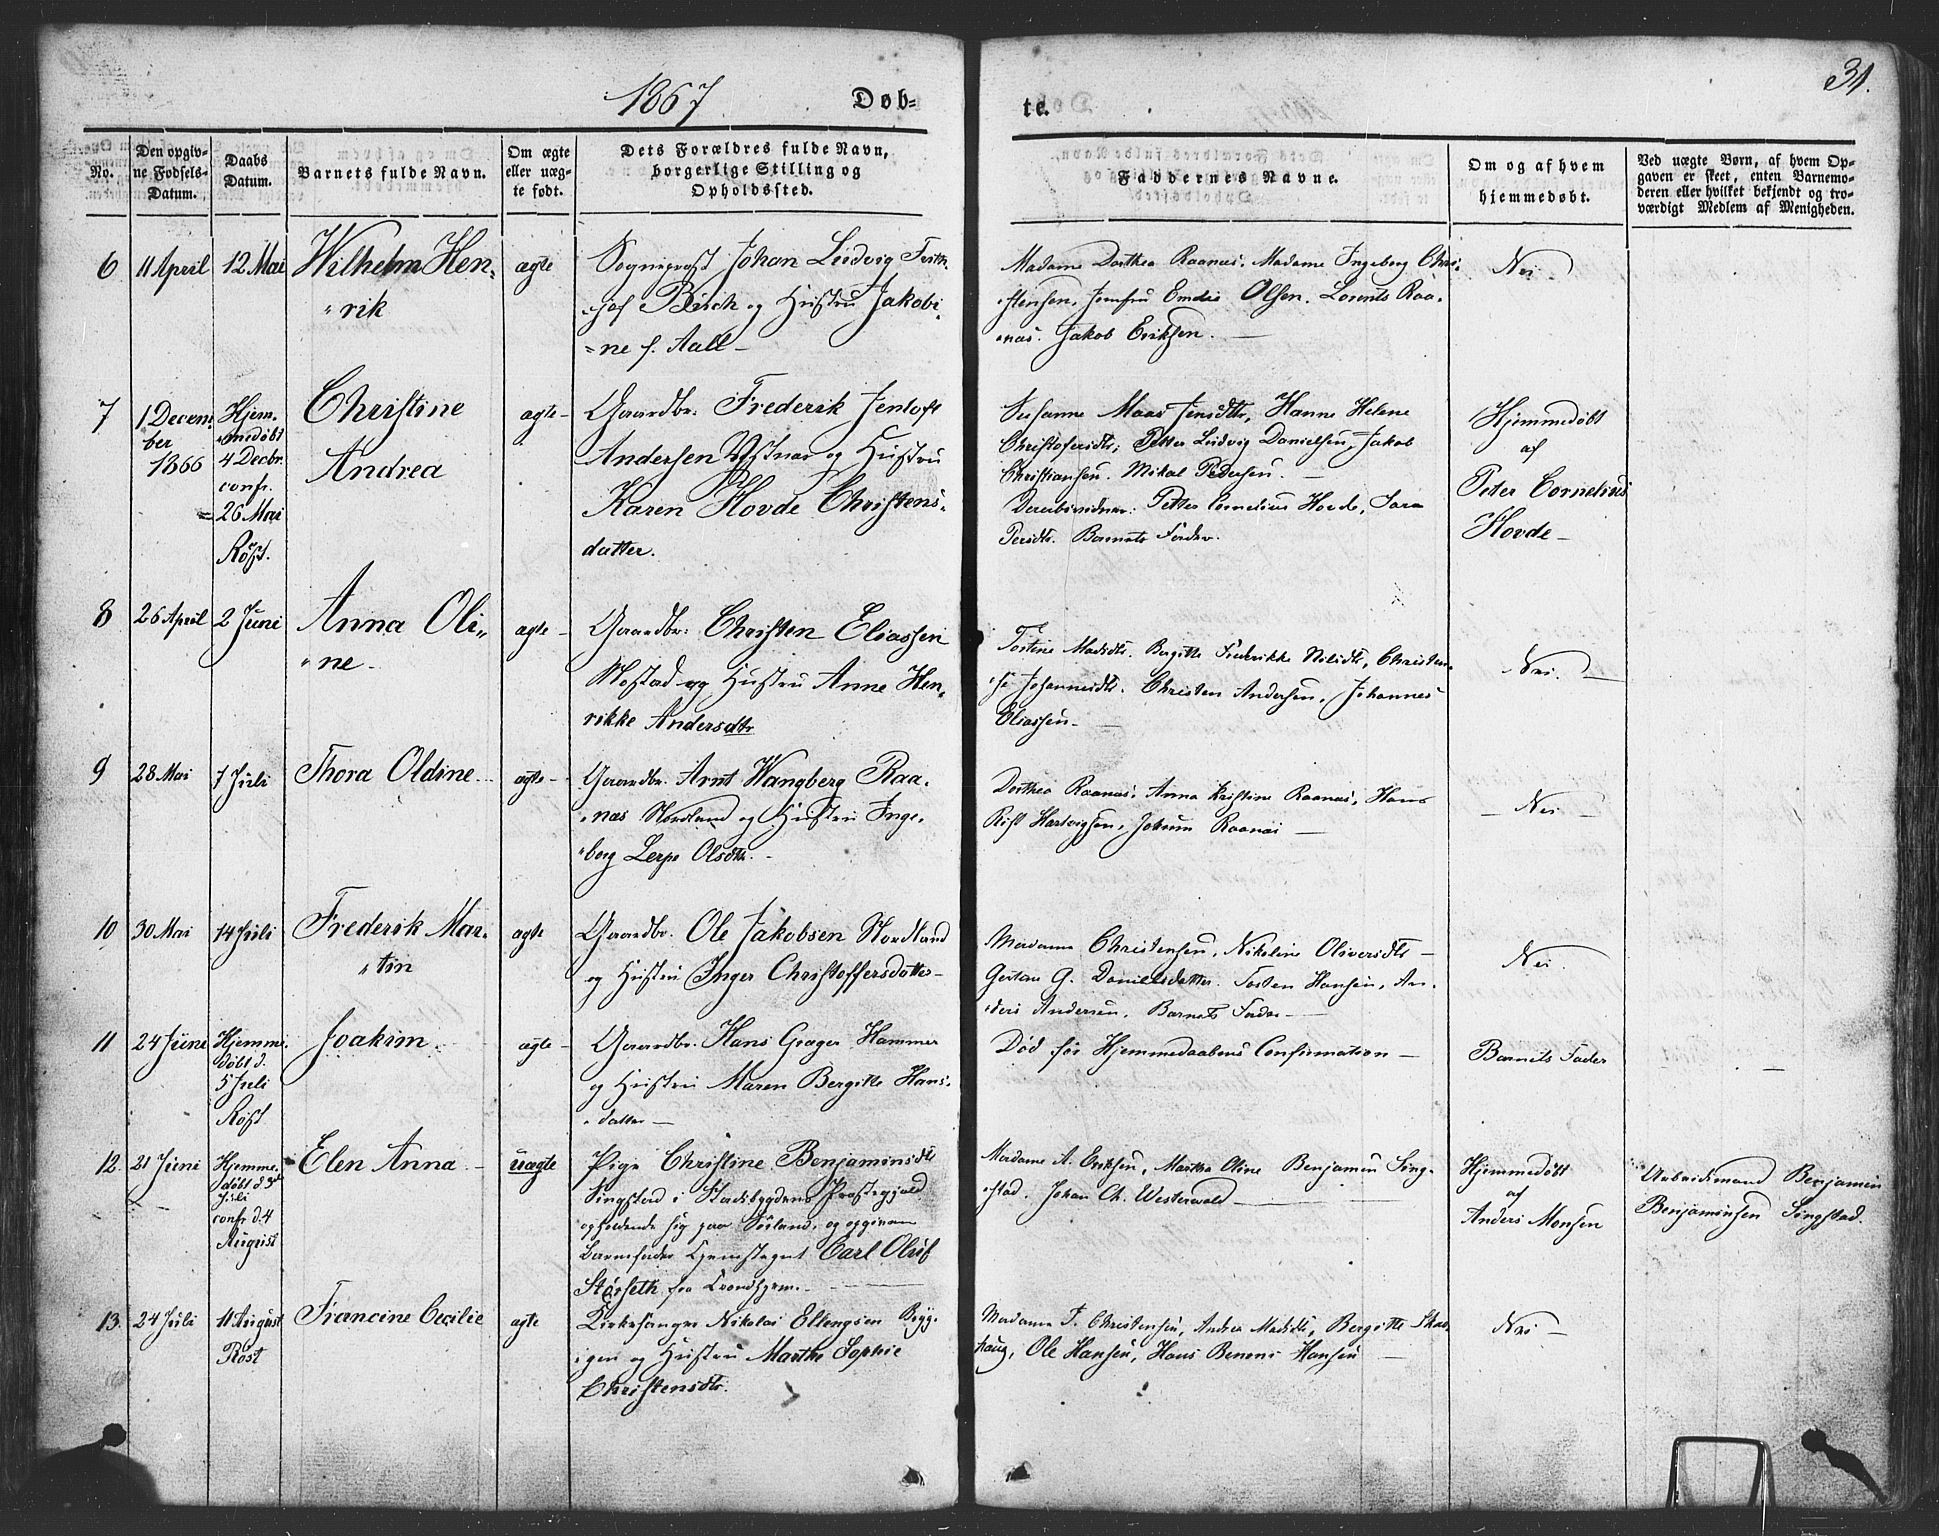 1867
Døb=
te.
31.
No.
Den opgiv=
ne Fødsels=
Datum.
Daabs
Datum.
Barnets fulde Navn.
Om ægte
eller uæg=
te født.
Dets Forældres fulde Navn,
borgerlige Stilling og
Opholdssted.
Faddernes Navne.
Om og af hvem
hjemmedøbt.
Ved uægte Børn, af hvem Op=
gaven er skeet, enten Barnemo=
deren eller hvilket bekjendt og tro=
værdigt Medlem af Menigheden.
6
11 April
12 Mai
Wilhelm Hen-
rik
ægte
Sognepræst Johan Ludvig Frith-
jof Birch og Hustru Jakobi-
ne f. Aall
Madame Dorthea Raanæs. Madame Ingeborg Chri-
stensen, Jomfru Emelie Olsen. Lorents Raa-
næs. Jakob Eriksen.
Nei
7
1 Decem
ber
1866
Hjem-
medøbt
4 Decbr.
conf.
26 Mai
Røst.
Christine
Andrea
ægte
Gaardbr. Frederik Jentoft
Andersen og Hustru
Karen Hovde Christens-
datter.
Susanne Maas Jensdtr, Hanne Helene
Christofersdtr, Petter Ludvig Danielsen, Jakob
Christiansen. Mikal Pedersen.
Daabsvidner: Petter Cornelius Hovde, Sara
Persdtr. Barnets Fader.
Hjemmedøbt
af
Peter Cornelius
Hovde
8
26 April
2 Juni
Anna Oli-
ne
ægte
Gaardbr. Christen Eliassen
Mostad og Hustru Anne Hen-
rikke Andersdtr
Tostine Madsdtr. Bergitte Frederikke Nilsdtr, Christen-
se Johannesdtr. Christen Andersen, Johannes
Eliassen
Nei.
9
28 Mai
7 Juli
Thora Oldine
ægte
Gaardbr. Arnt Wangberg Raa-
næs Nordland og Hustru Inge-
borg Olsdtr.
Dorthea Raanæs, Anna Kristine Raanæs, Hans
Rist Hartvigsen, Johan Raanæs
Nei
10
30 Mai
14 Juli
Frederik Mar-
tin
ægte
Gaardbr. Ole Jakobsen Nordland
og Hustru Inger Christoffersdatter
Madame Christensen, Nikoline Oliversdtr
G. Danielsdatter. Tosten Hansen, An-
ders Andersen, Barnets Fader
Nei.
11
24 Juni
Hjemme-
døbt d.
5 Juli
Røst
Joakim.
ægte
Gaardbr. Hans Grager Hammer
og Hustru Maren Bergitte Hans-
datter
Død før Hjemmedaabens Confirmation
Barnets Fader
12.
21 Juni
Hjemme-
døbt d 3d
Juli
conf. d. 4
August
Elen Anna
uægte
Pige Christine Benjaminsdtr
Singstad i Stadsbygdens Præstegjeld
opholdende sig paa Sørland, og opgiven
Barnefader Carl Oluf
Størseth fra Trondhjem.
Madame A. Eriksen, Martha Oline Benjamin Sing-
stad. Johan Ch. Westerwald
Hjemmedøbt
af
Anders Monsen
Arbeidsmand Benjamin
Benjaminsen Singstad.
13.
24 Juli
11 August
Røst
Francine Cecilie
ægte
Kirkesanger Nikolai Ellengsen Byg-
igen og Hustru Marthe Sophie
Christensdtr.
Madame F. Christensen, Andrea Madsdtr, Bergitte Skar-
, Ole Hansen, Hans Benoni Hansen
Nei